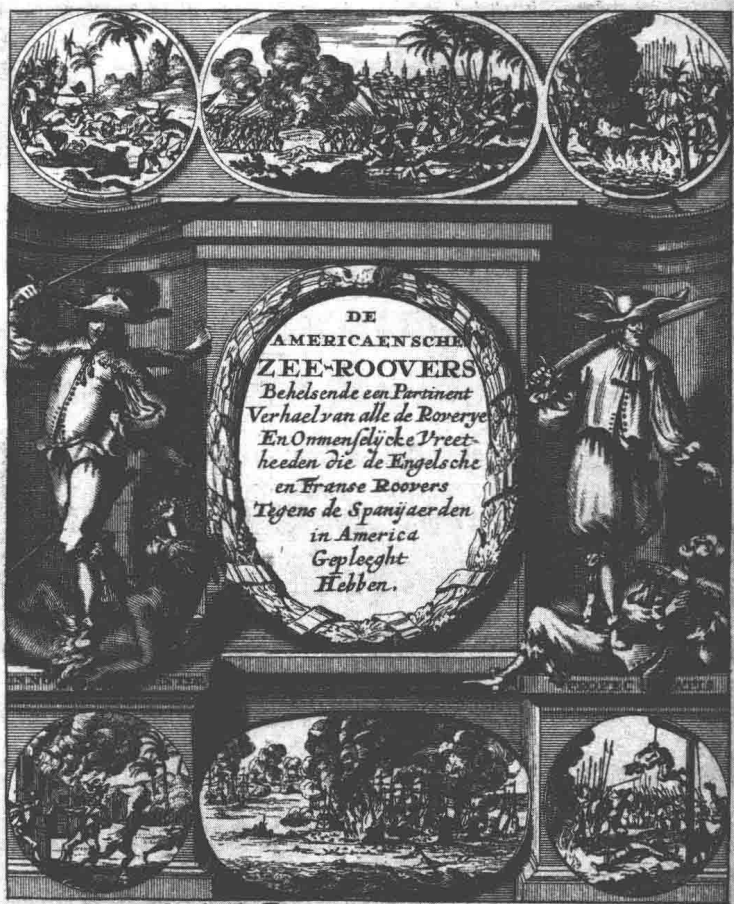 DE
AMERICAENSCHE
ZEE-ROOVERS
Behelsende een Partinent
Verhael van alle de Roverye
En Onmenſelijcke Vreet-
heeden die de Engelsche
en Franse Roovers
Tegens de Spanijaerden
in America
Gepleeght
Hebben.